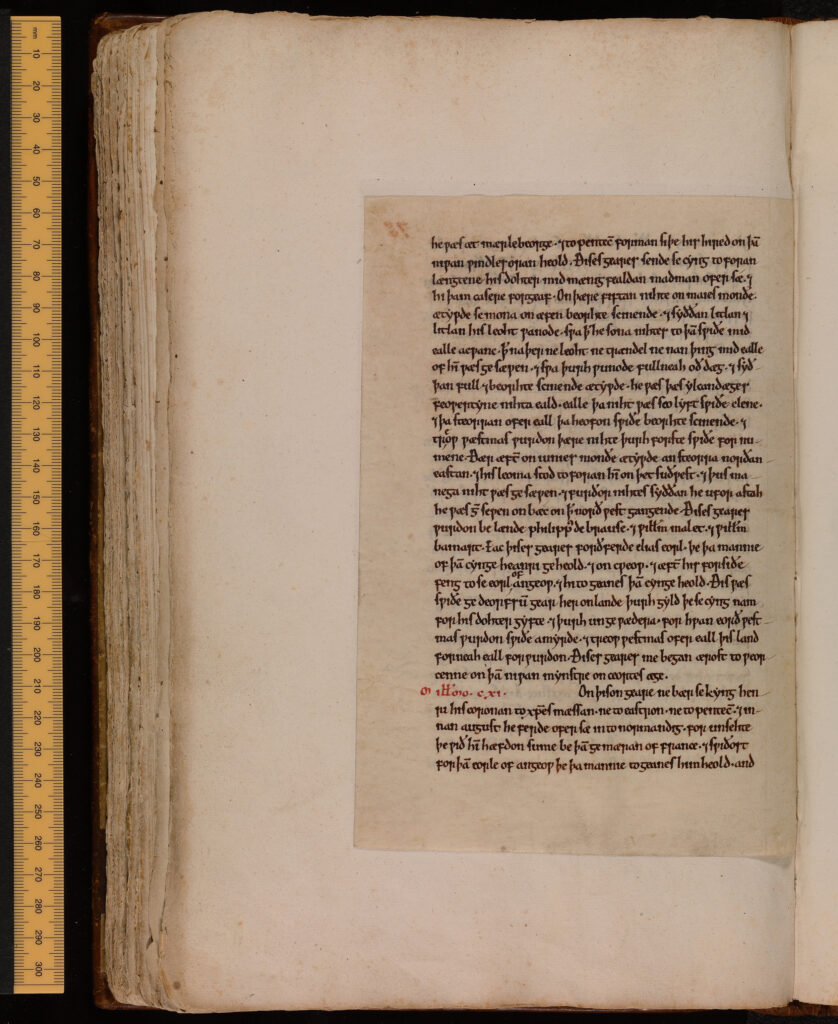 mm
10
20
30
40
50
60
70
80
90
100
110
120
130
140
150
160
170
180
190
200
210
220
230
240
250
260
270
280
290
300
he ƿæs æt mærlebeorge. ⁊ to pentec̄ forman siþe his hired on þā
niƿan ƿindlesoran heold. Ðises geares sende se cyng toforan
længtene his dohter mid mænigfealdan madman ofer sæ. ⁊
hi þam casere forgeaf. On þære fiftan nihte on maies monðe.
ætyƿde se mona on æfen beorhte scinende. ⁊ syððan litlan ⁊
litlan his leoht ƿanode. sƿa ꝥ he sona nihtes to þā sƿiðe mid
ealle acƿanc. ꝥ naþer ne leoht ne trændel ne nan þing mid ealle
of hī ƿæs geseƿen. ⁊ sƿa þurhƿunode fullneah oð dæg. ⁊ syð-
þan full ⁊ beorhte scinende ætyƿde. he ƿæs þæs ylcan dæges
feoƿertyne nihta eald. ealle þa niht ƿæs seo lyft sƿiðe clene.
⁊ þa steorran ofer eall þa heofon sƿiðe beorhte scinende. ⁊
treoƿ ƿæstmas ƿurdon þære nihte þurh forste sƿiðe for nu-
mene. Ðær æft̄ on iunies monðe ætyƿde an steorra norðan
eastan. ⁊ his leoma stod toforan hī on þet suðƿest. ⁊ þus ma-
nega niht ƿæs geseƿen. ⁊ furðor nihtes syððan he ufor astah
he ƿæs geseƿen on bæc on ꝥ norðƿest gangende. Ðises geares
ƿurdon belænde philipp̄ de brause. ⁊ ƿillm̄ malet. ⁊ ƿillm̄
bainart. Eac þises geares forðferde elias eorl. þe þa mannie
of þā cynge heanri geheold. ⁊ on cƿeoƿ. ⁊ æft̄ his forsiðe
feng to se eorl of angeoƿ. ⁊ hi togeanes þā cynge heold. Ðis ƿæs
sƿiðe gedeorfsū gear her on lande þurh gyld þe se cyng nam
for his dohter gyfte. ⁊ þurh ungeƿædera. for hƿan eorð ƿest-
mas ƿurdon sƿiðe amyrde. ⁊ treoƿ ƿestmas ofer eall þis land
forneah eall forƿurdon. Ðises geares me began ærost to ƿeor-
cenne on þā niƿan mynstre on ceortes æge.
Millmo. cxi. On þison geare ne bær se kyng hen-
ri his coronan to xp̄es mæssan. ne to eastron. ne to pentec̄. ⁊ in-
nan august he ferde ofer sæ into normandig. for unsehte
þe ƿið hī hæfdon sume be þā gemæran of france. ⁊ sƿiðost
for þā eorle of angeoƿ þe þa mannie togeanes him heold. and